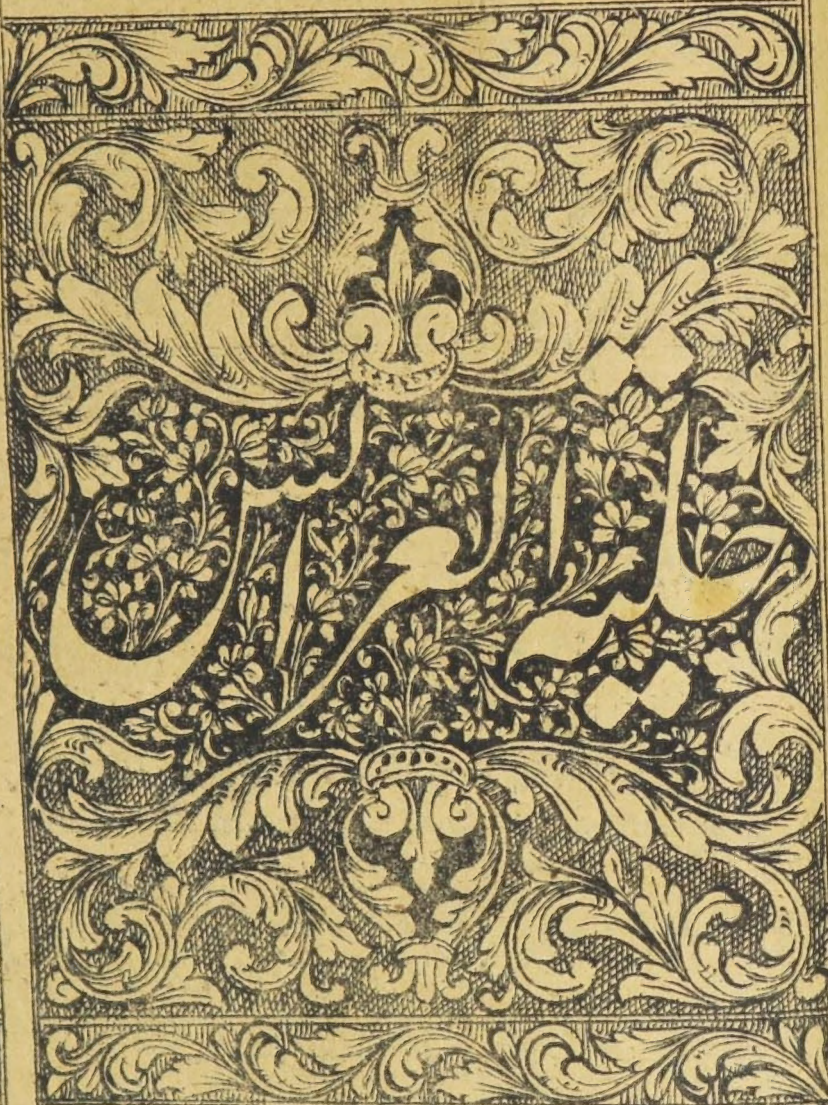 حلية العرائس